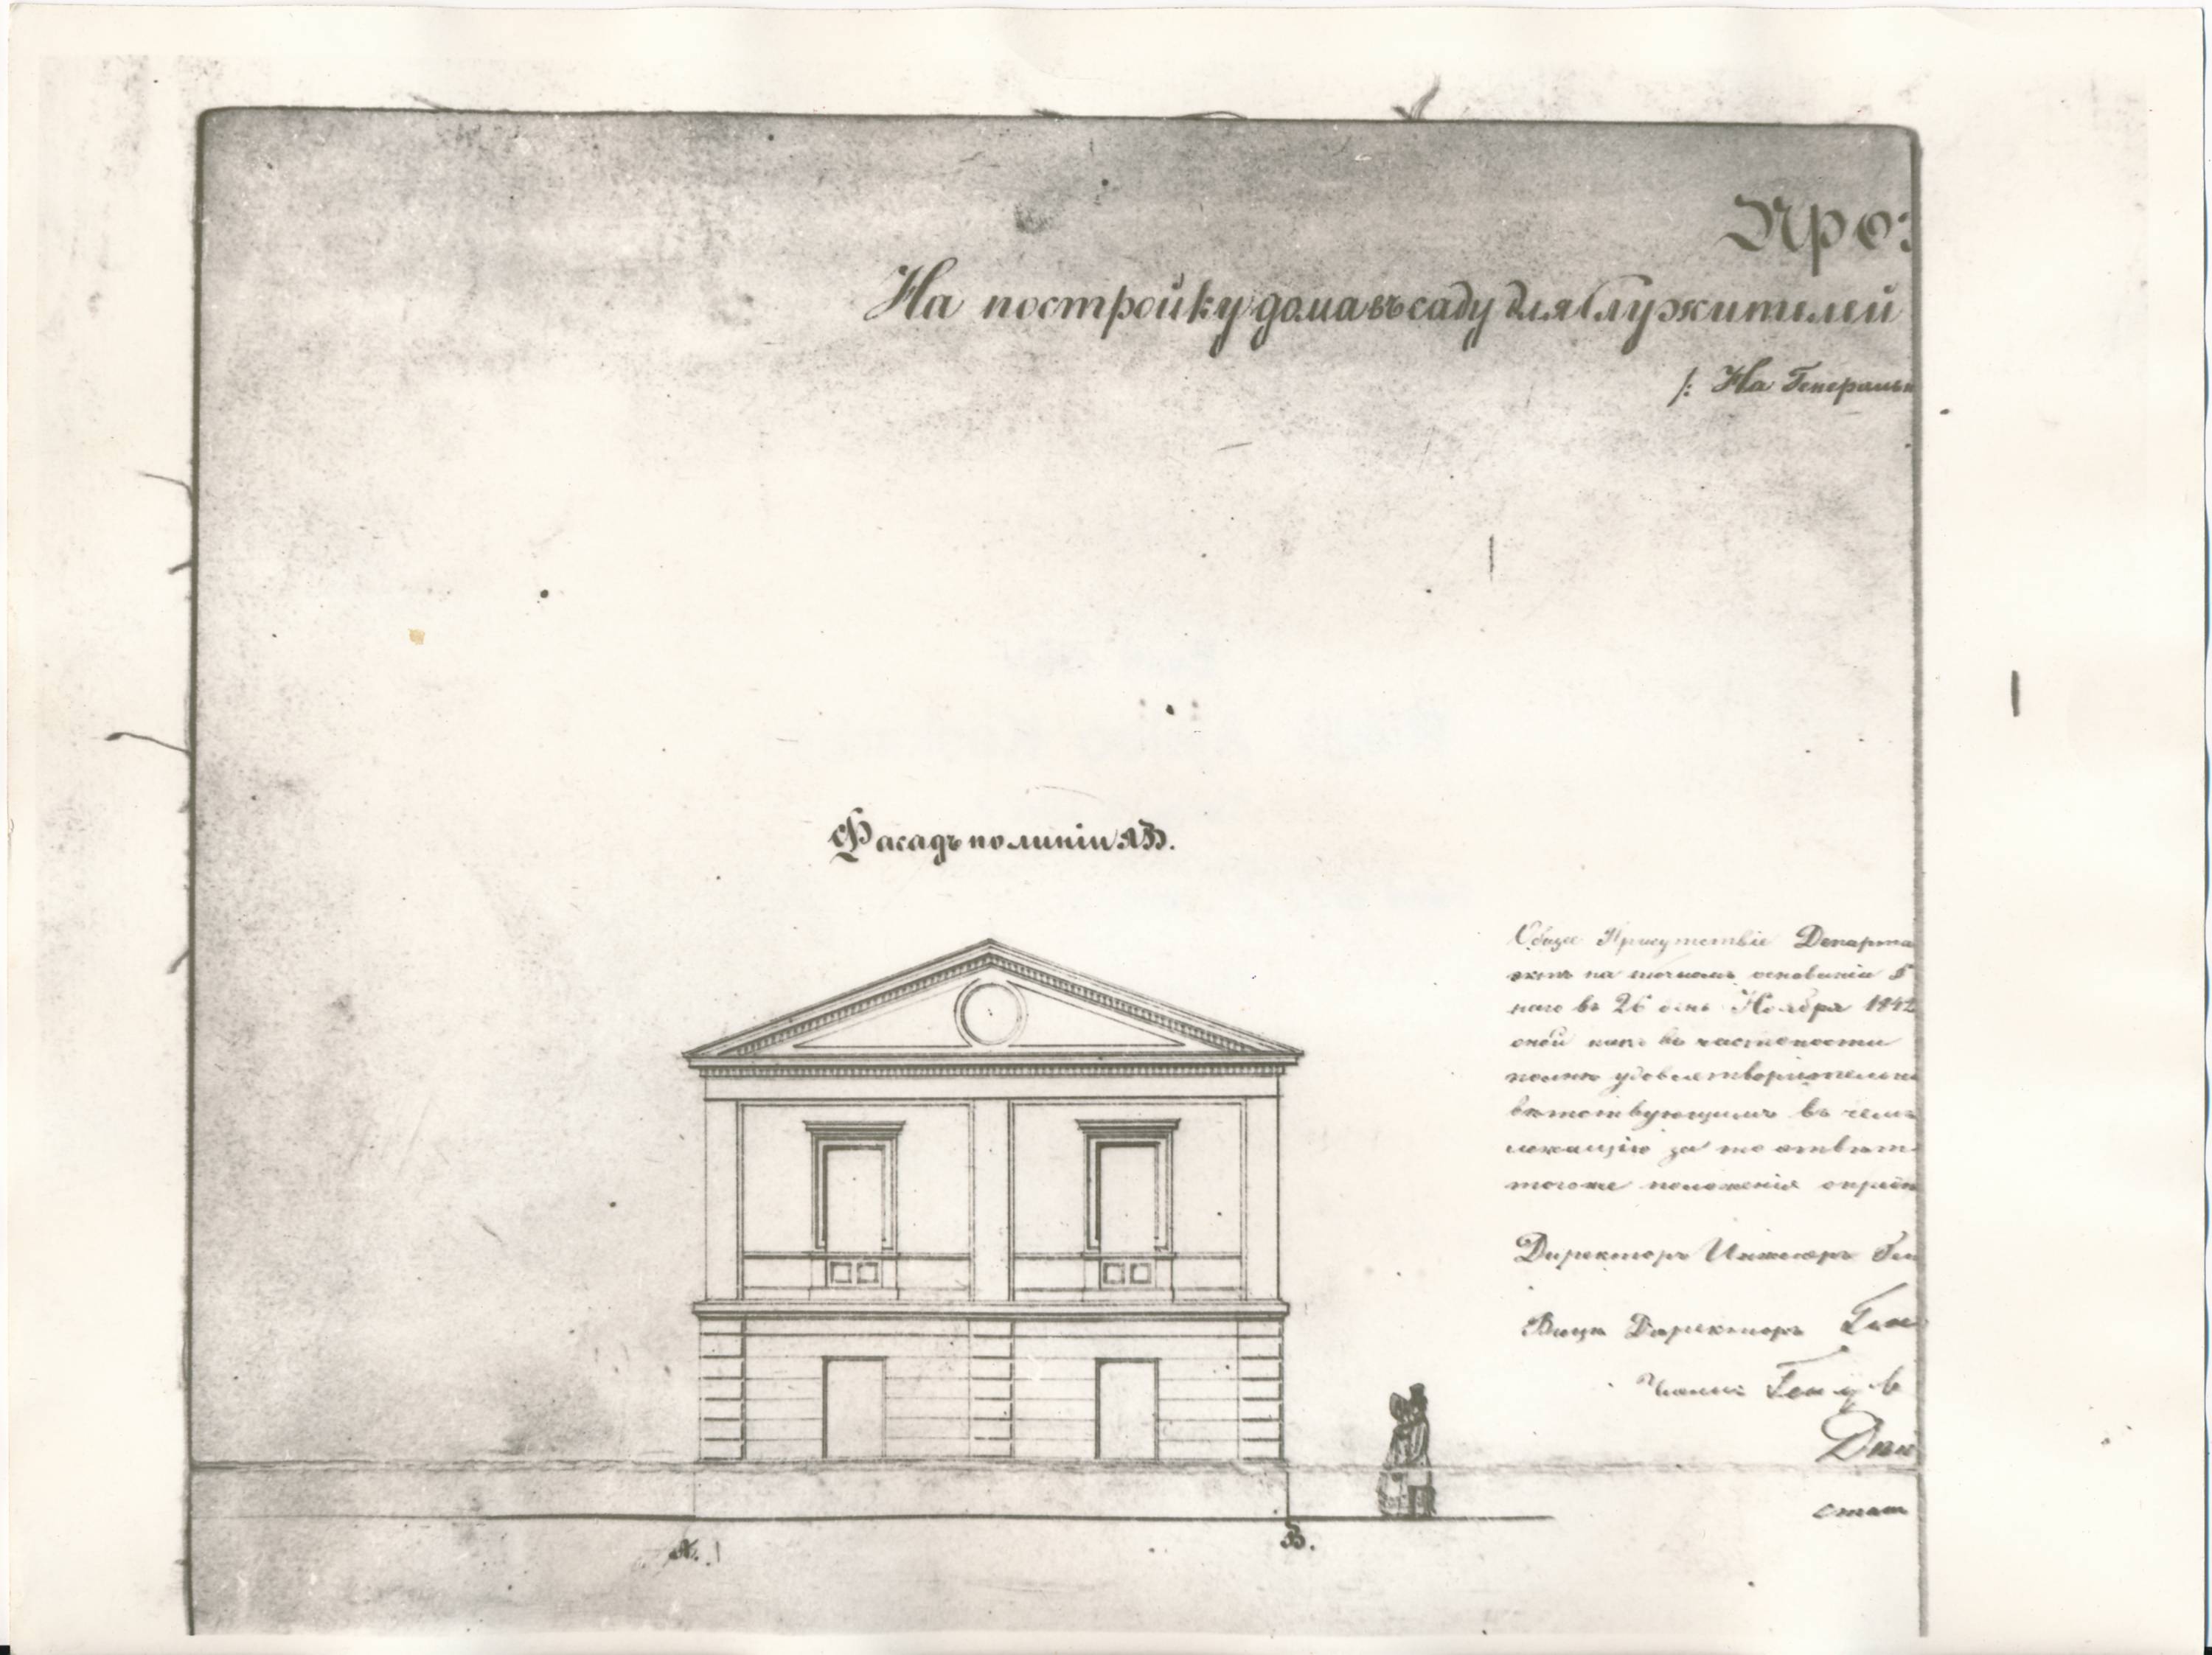 Про:
На постройку дома въ саду для Служителей
/: На Генеральн
Фасадъ по линіи АВ.
Общее Присутствіе Департа
на точномъ основаніи §
наго въ 26 день Ноября 1842
оной какъ въ частности
удовлетворительн
вѣтствующимъ въ чемъ
за то отвѣт
тогоже положенія
Директоръ Инженеръ Ген
Вице Директоръ Ген
А.
В.